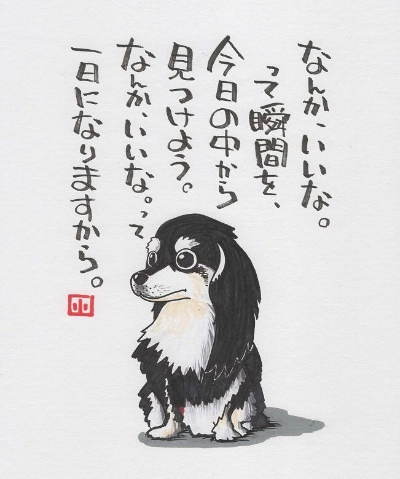 なんか、いいな。
って瞬間を、
今日の中から
見つけよう。
なんか、いいな。って
一日になりますから。